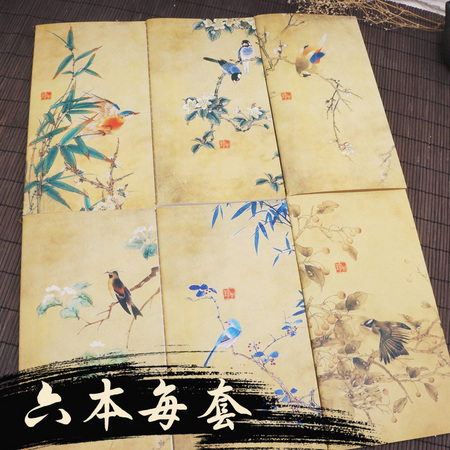 六本每套